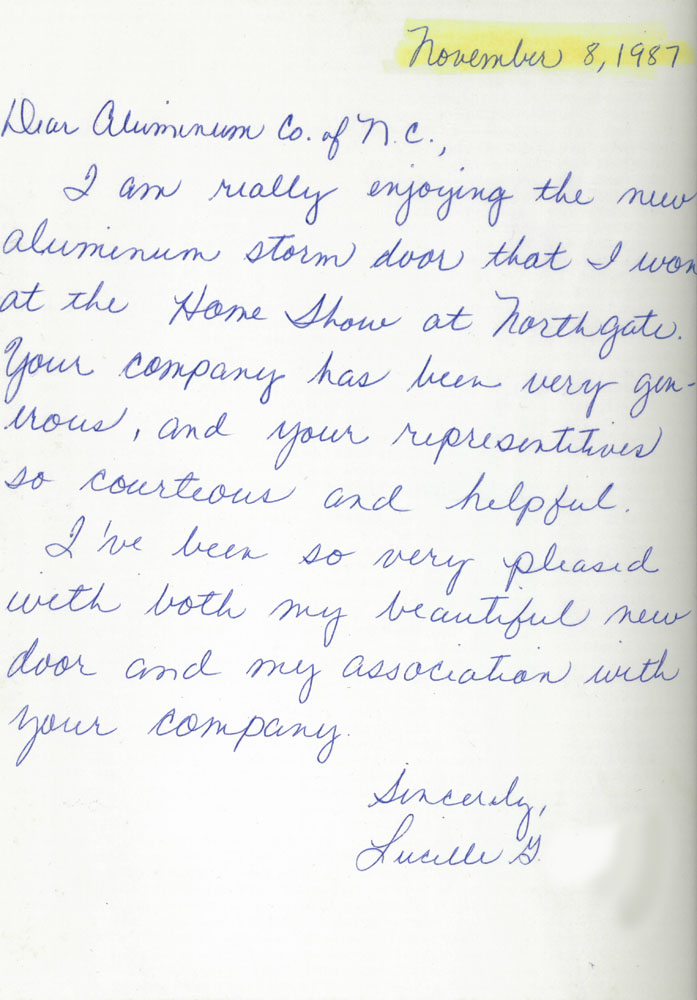 November 8, 1987
Dear Aluminum Co. of N.C.,
I am really enjoying the new
aluminum storm door that I won
at the Home Show at Northgate.
Your company has been very gen-
erous, and your representitives
so courteous and helpful.
I've been so very pleased
with both my beautiful new
door and my association with
your company.
Sincerely,
Lucille G.